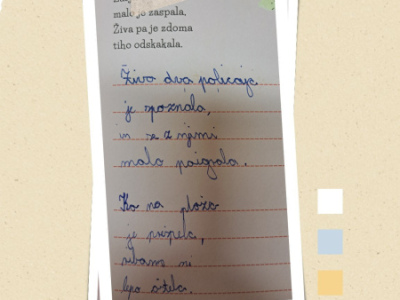 malo je zaspala,
Živa pa je zdoma
tiho odskakala.
Živa dva policaje
je spoznala,
in se z njimi
malo paigrala.
Ko na plažo
je prispela,
ribam ni
lepo štela.